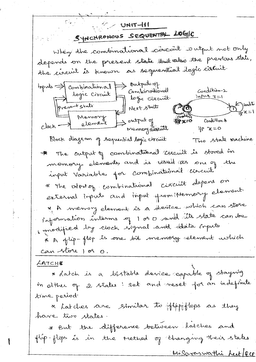 UNIT-III
SYNCHRONOUS SEQUENTIAL LOGIC
When the combinational circuit output not only
depends on the present state but also the previous state,
the circuit is known as sequential logic circuit
Inputs
Combinational
Logic Circuit
Outputs of
Combinational
Logic Circuit
Present state
Next state
Memory
element
Clock
output of
memory circuits
Condition-2
Block diagram of sequential logic circuit
Two state machine
* The output of combinational circuit is stored in
memory elements and is used as one of the
input variable for combinational circuit
* The output of combinational circuit depends on
external inputs and input from memory element
* A memory element is a device which can store
information interms of 1 or 0 and its state can be
modified by clock signal and data inputs
* A flip-flop is one bit memory element which
can store 1 or 0.
LATCH:
* Latch is a bistable device capable of staying
in either of 2 states: set and reset for an indefinite
time period
* Latches are similar to flipflops as they
have two states.
* But the difference between latches and
flip-flops is in the method of changing their states